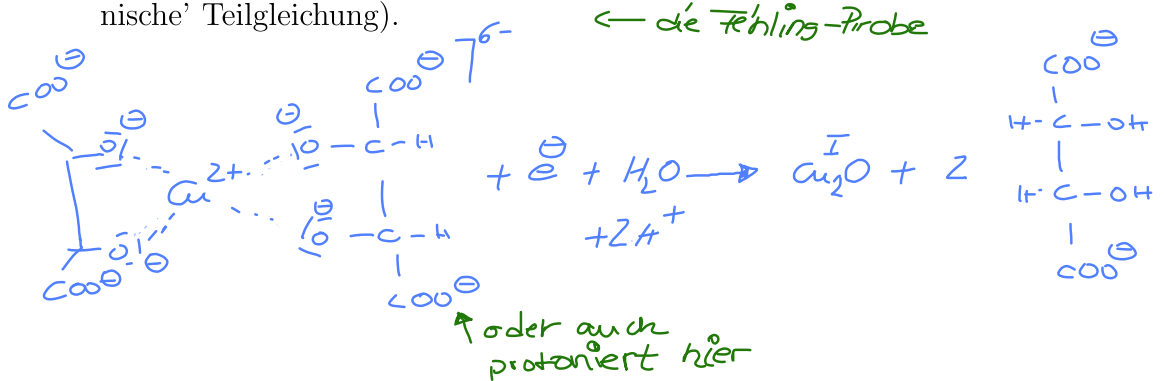 nische’ Teilgleichung).
← die Fehling-Probe
COO⊖ O⊖ O⊖ COO⊖ Cu²⁺ ⊖O – C – H ⊖O – C – H COO⊖ COO⊖ ]⁶⁻ + e⊖ + H₂O → Cu₂ᴵO + 2 COO⊖ H - C - OH H - C - OH COO⊖
+2H⁺
↑ oder auch
protoniert hier